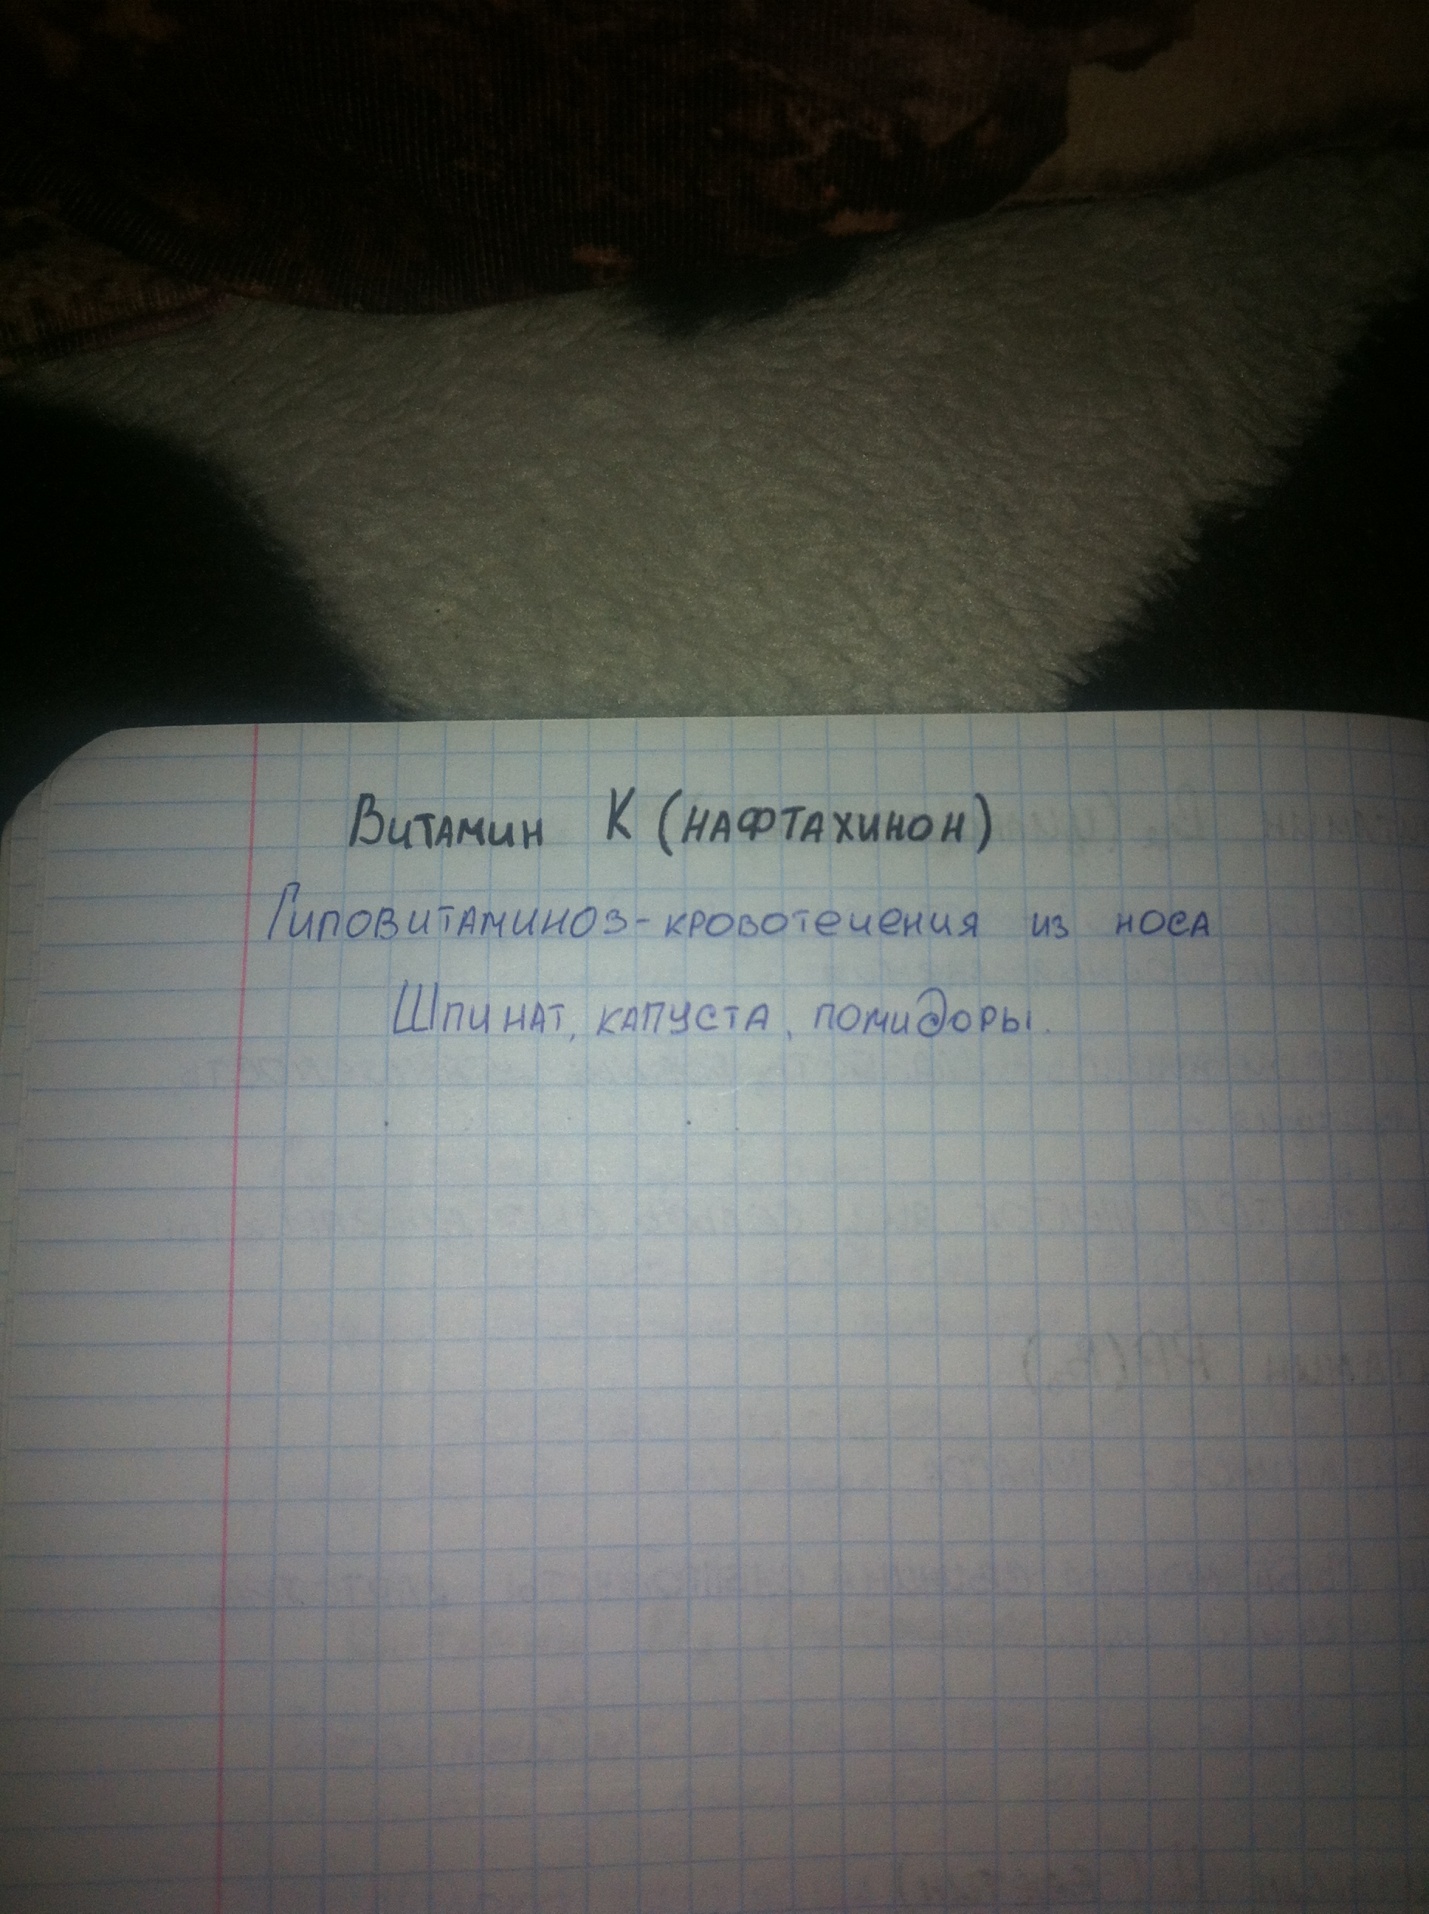 Витамин К (нафтахинон)
Гиповитаминоз-кровотечения из носа
Шпинат, капуста, помидоры.